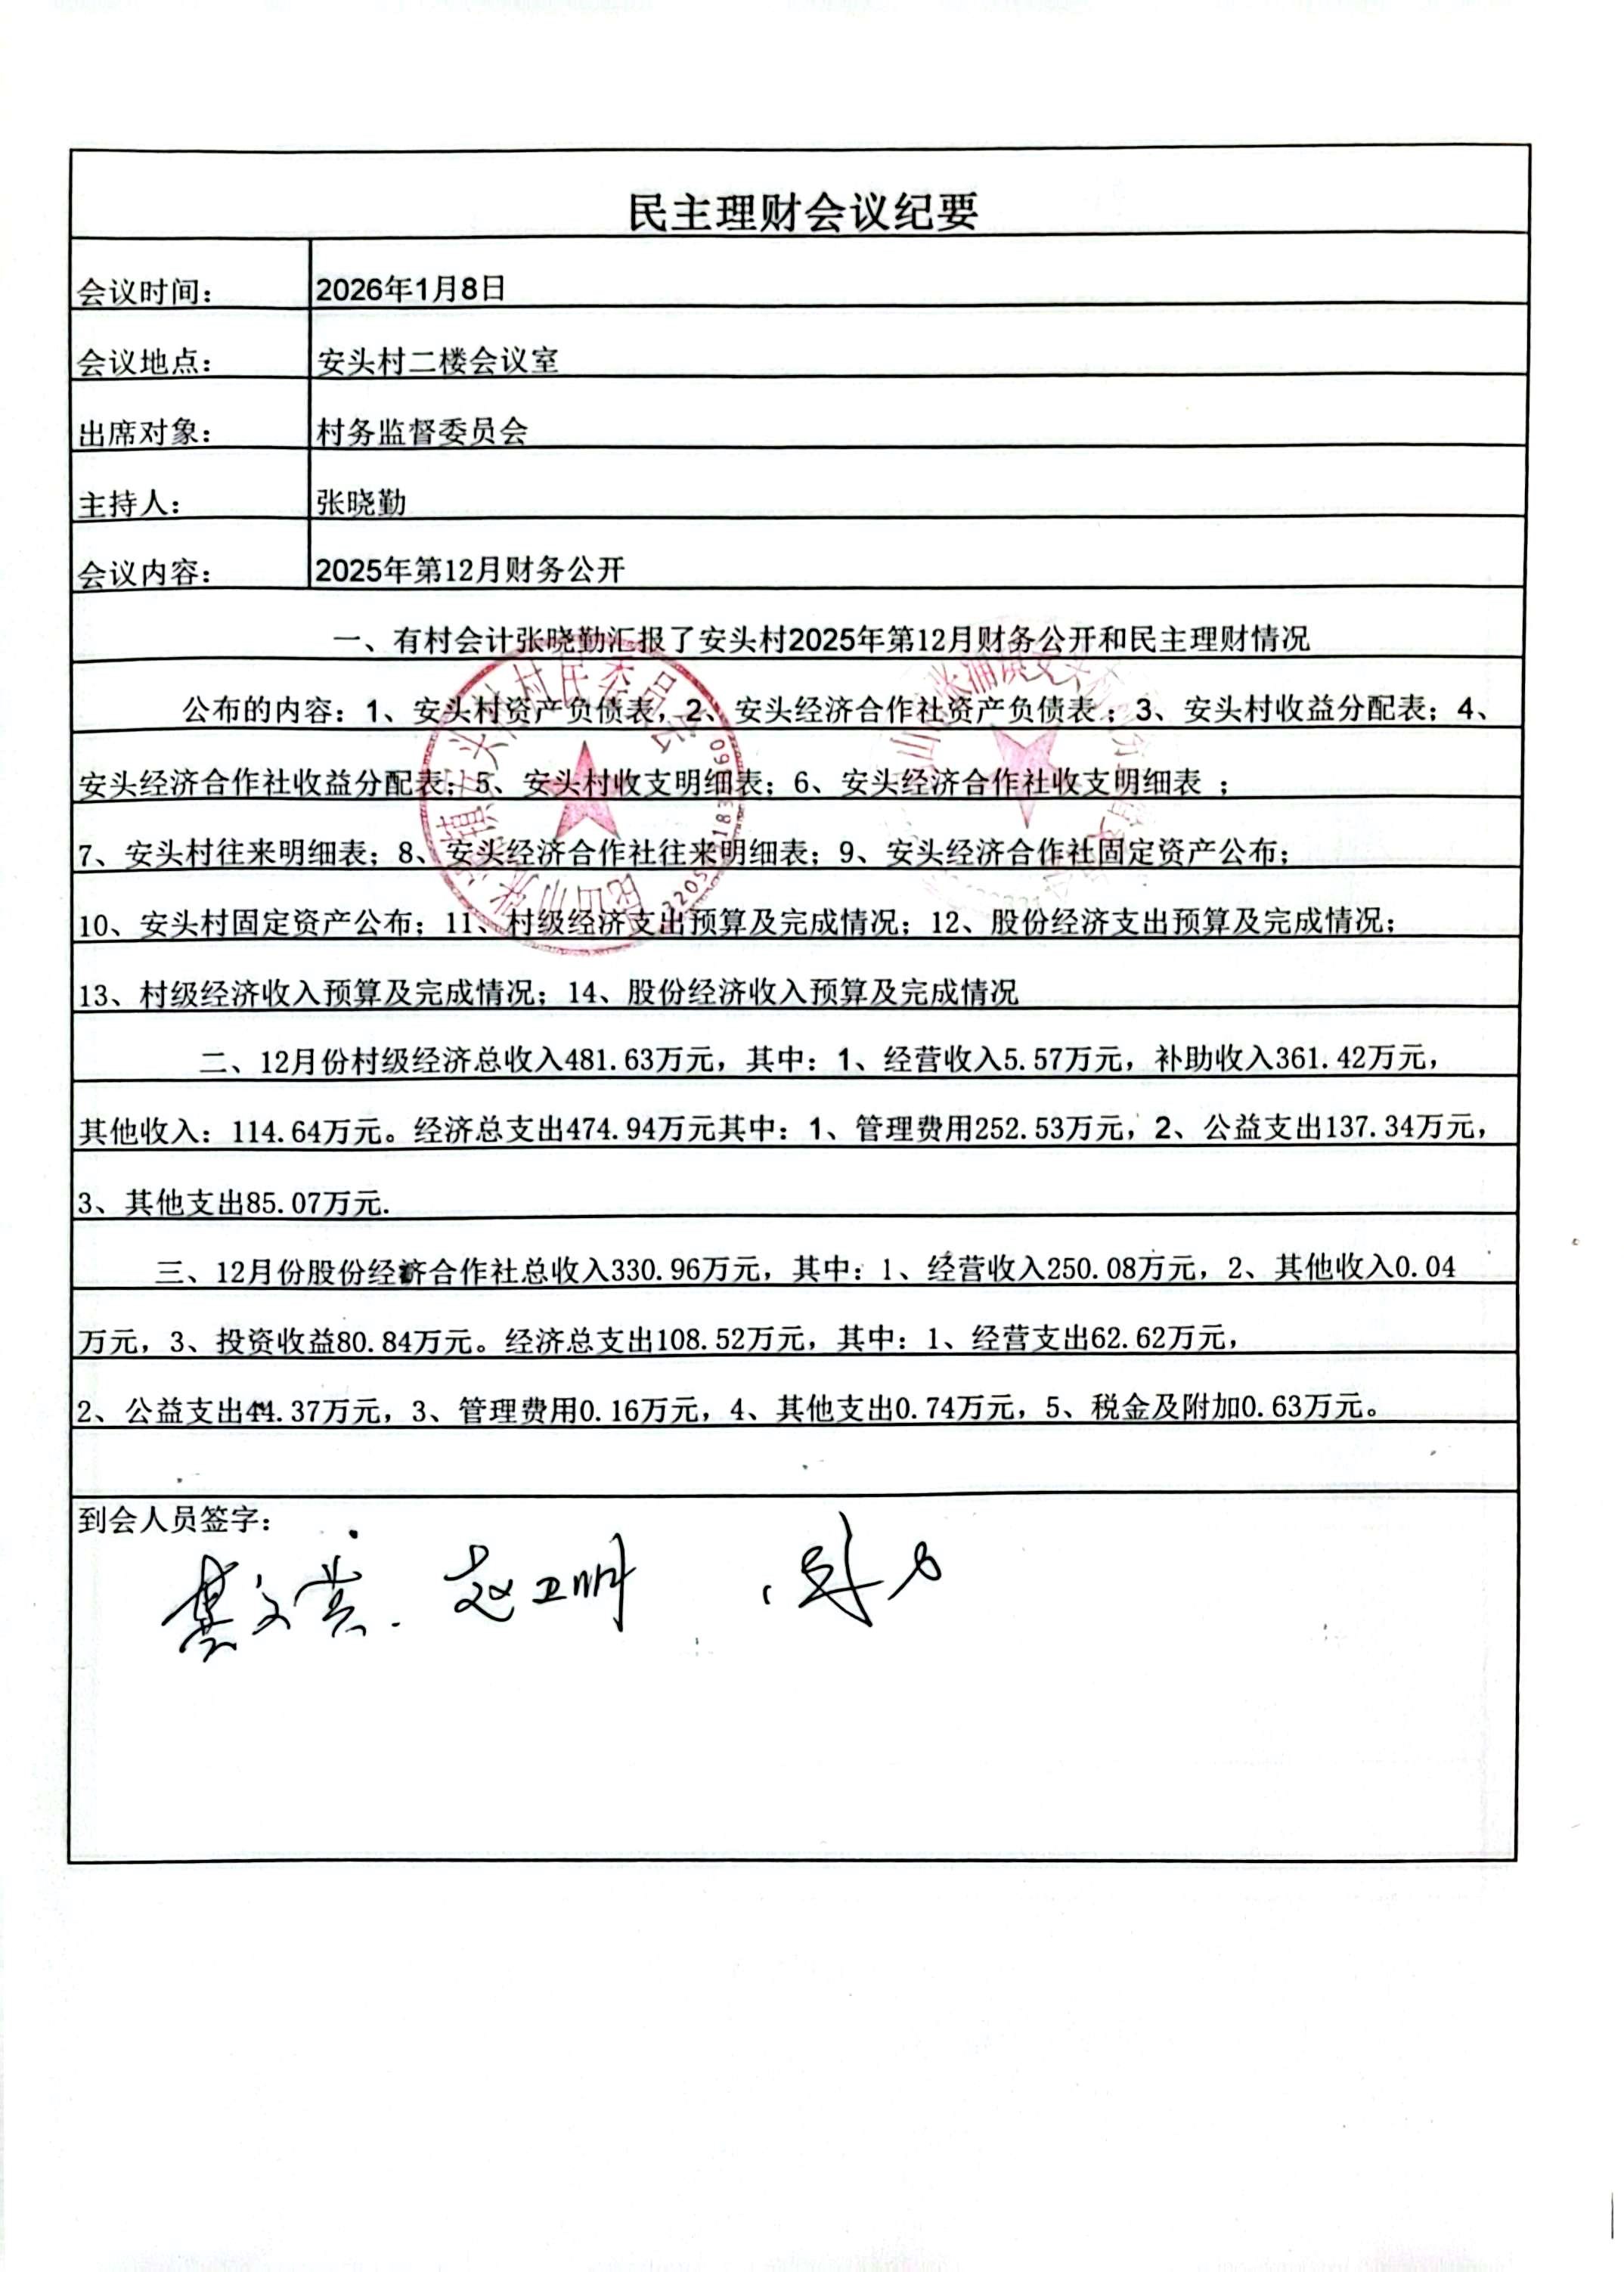 民主理财会议纪要
会议时间： 2026年1月8日
会议地点： 安头村二楼会议室
出席对象： 村务监督委员会
主持人： 张晓勤
会议内容： 2025年第12月财务公开
一、有村会计张晓勤汇报了安头村2025年第12月财务公开和民主理财情况
公布的内容：1、安头村资产负债表，2、安头经济合作社资产负债表；3、安头村收益分配表；4、
安头经济合作社收益分配表；5、安头村收支明细表；6、安头经济合作社收支明细表 ；
7、安头村往来明细表；8、安头经济合作社往来明细表；9、安头经济合作社固定资产公布；
10、安头村固定资产公布；11、村级经济支出预算及完成情况；12、股份经济支出预算及完成情况；
13、村级经济收入预算及完成情况；14、股份经济收入预算及完成情况
二、12月份村级经济总收入481.63万元，其中：1、经营收入5.57万元，补助收入361.42万元，
其他收入：114.64万元。经济总支出474.94万元其中：1、管理费用252.53万元，2、公益支出137.34万元，
3、其他支出85.07万元.
三、12月份股份经济合作社总收入330.96万元，其中：1、经营收入250.08万元，2、其他收入0.04
万元，3、投资收益80.84万元。经济总支出108.52万元，其中：1、经营支出62.62万元，
2、公益支出44.37万元，3、管理费用0.16万元，4、其他支出0.74万元，5、税金及附加0.63万元。
到会人员签字：
赵卫明
昆山市张浦镇安头村村民委员会